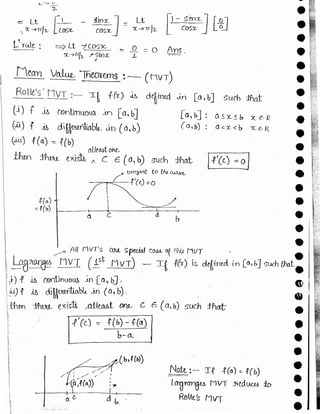 = Lt x→π/2 [ 1/cosx - sinx/cosx ] = Lt x→π/2 [ 1 - sinx / cosx ] [0/0]
L' rule : ⇒ Lt x→π/2 -cosx / -sinx = 0/1 = 0 Ans.
Mean Value Theorems :— (MVT)
Rolle's MVT :— If f(x) is defined in [a,b] such that
(i) f is continuous in [a,b] [a,b] : a≤x≤b x∈R
(ii) f is differentiable in (a,b) (a,b) : a<x<b x∈R
(iii) f(a) = f(b)
atleast one
then there exists ^ C ∈ (a,b) such that f'(c) = 0
tangent to the curve
f'(c) = 0
f(a)
= f(b)
a c d b
All MVT's are special case of this MVT
Lagranges MVT (1st MVT) — If f(x) is defined in [a,b] such that
i) f is continuous in [a,b].
ii) f is differentiable in (a,b).
then there exists atleast one C ∈ (a,b) such that
f'(c) = f(b) - f(a) / b-a
(b, f(b))
Note :— If f(a) = f(b)
(a, f(a)) lagranges MVT reduces to
a c d b Rolle's MVT